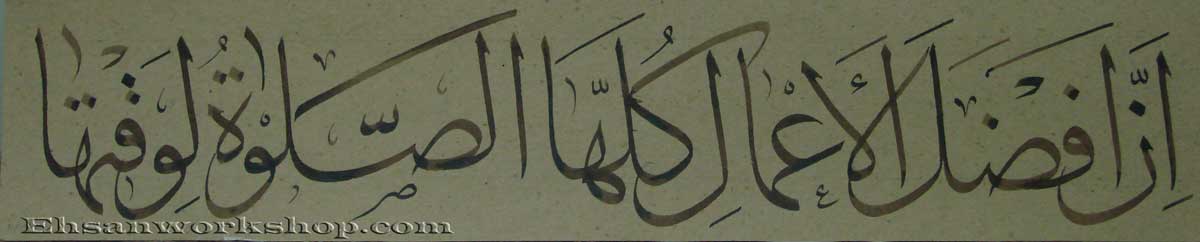 اِنَّ اَفْضَلَ الْأَعْمَالِ كُلِّهَا الصَّلٰوةُ لِوَقْتِهَا
Ehsanworkshop.com